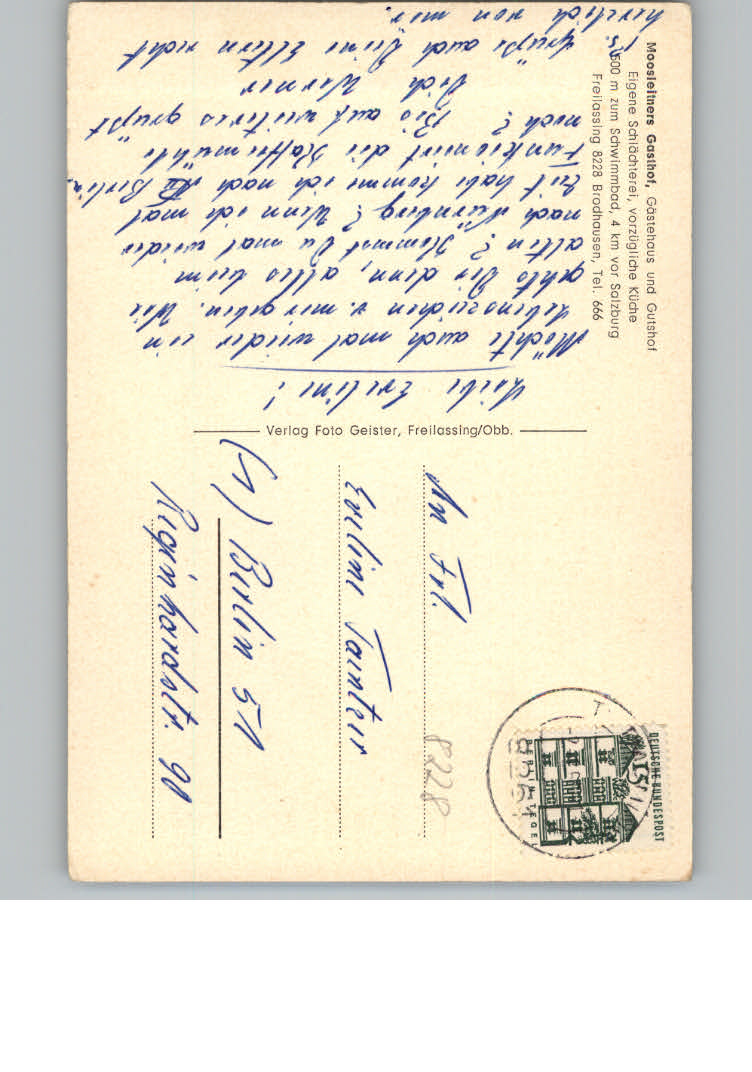 Moosleitners Gasthof, Gästehaus und Gutshof
Eigene Schlächterei, vorzügliche Küche
500 m zum Schwimmbad, 4 km vor Salzburg
Freilassing 8228 Brodhausen, Tel. 666
Verlag Foto Geister, Freilassing/Obb.
Liebe Eveline!
Möchte auch mal wieder ein
Lebenszeichen v. mir geben. Wie
gehts Dir denn, alles beim
alten? Kommst Du mal wieder
nach Nürnberg? Wenn ich mal
Zeit habe komme ich nach Berlin.
Funktioniert die Kaffeemühle
noch? Bis auf weiteres grüßt
Dich Werner
P.S. Grüße auch Deine Eltern recht
herzlich von mir.
An Frl.
Eveline
(1) Berlin 51
Reginhardstr. 90
8228
DEUTSCHE BUNDESPOST
15
BERLIN-TEGEL